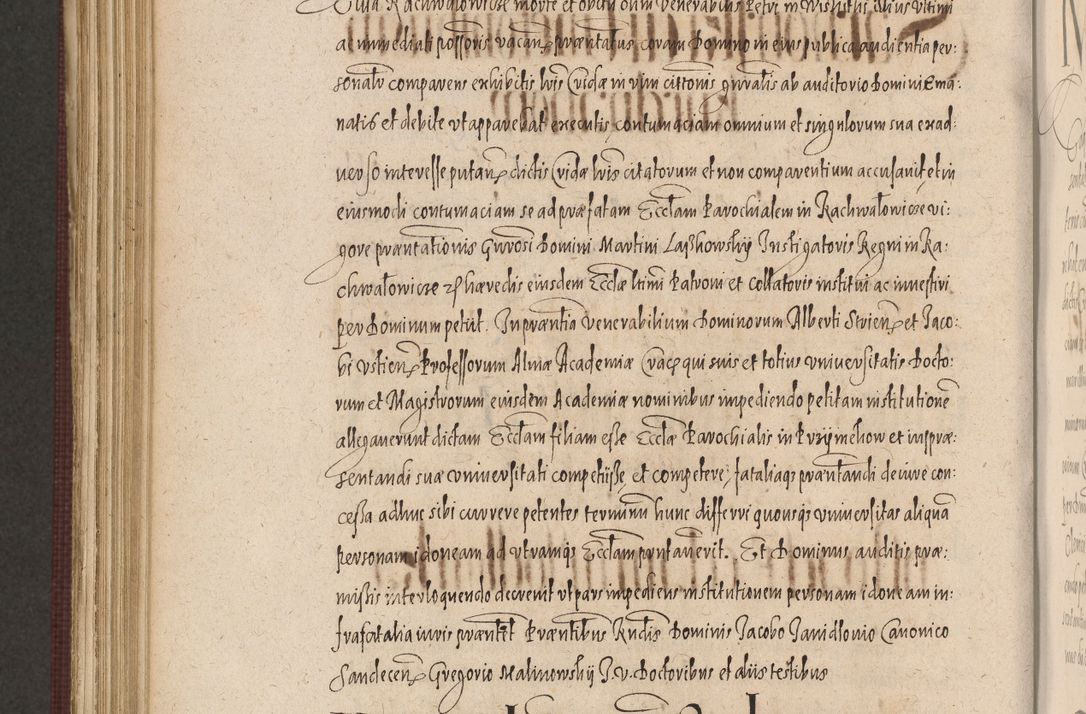 Rachwałowicze morte et obitu olim Venerabilis Petri
ac immediati possoris vacan. præntatus coram Domino in eius publica audientia per:
sonalr comparens exhibitis lris Cridæ in vim cittonis gnralis ab auditorio Domini Ema:
natis et debite vt apparebat executis contumaciam omnium et singulorum sua exad:
uerso interesse putan. dictis Cridæ lris citatorum et non comparentium accusauit et in
eiusmodi contumaciam se ad præfatam Eccłam Parochialem in Rachwałowicze vi:
gore præntationis Gnrosi Domini Martini Instigatoris Regni in Ra:
chwałowicze hæredis eiusdem Ecclæ ltimi Patroni et Collatoris institui ac inuestiri
per Dominum petiit. In præntia Venerabilium Dominorum Alberti et Jaco:
bi Vstien. Professorum Almæ Academiæ Crac. qui suis et totius vniuersitatis Docto:
rum et Magistrorum eiusdem Academiæ nominibus impediendo petitam institutione
allegauerunt dictam Eccłam filiam esse Ecclæ Parochialis in et iuspræ:
sentandi suæ vniuersitati competiisse et competere, fataliaq præntandi de iure con:
cessa adhuc sibi currere petentes terminũ hunc differri quousq vniuersitas aliquã
personam idoneam ad vtramq Eccłam prntauerit. Et Dominus auditis præ:
missis interloquendo decreuit vt pars impediens institutionem personam idoneam in:
fra fatalia iuris præntet Præntibus Rndis Dominis Jacobo Janidlouio Canonico
Sandecen. Gregorio Malinowskij J. V. Doctoribus et aliis testibus